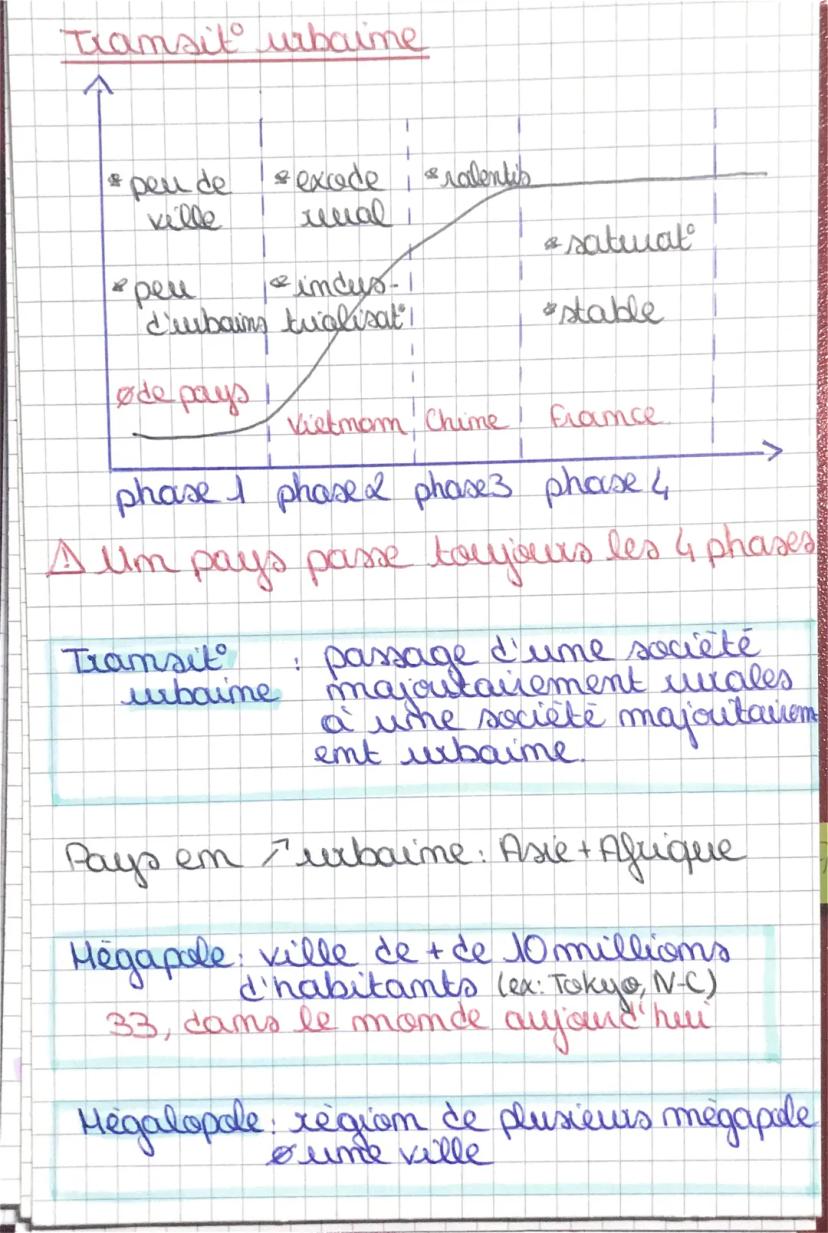 Transit° urbaine
* peu de
ville
* peu
d'urbains
ø de pays
* exode
rural
* indus-
trialisat°
Vietnam
* ralentis
Chine
* saturat°
* stable
France
phase 1 phase 2 phase 3 phase 4
⚠ Un pays passe toujours les 4 phases
Transit° : passage d'une société
urbaine majoritairement rurales
à une société majoritairem
ent urbaine.
Pays en ↗ urbaine : Asie + Afrique
Mégapole : ville de + de 10 millions
d'habitants (ex: Tokyo, N-C)
33, dans le monde aujourd'hui
Mégalopole : région de plusieurs mégapole
ø une ville